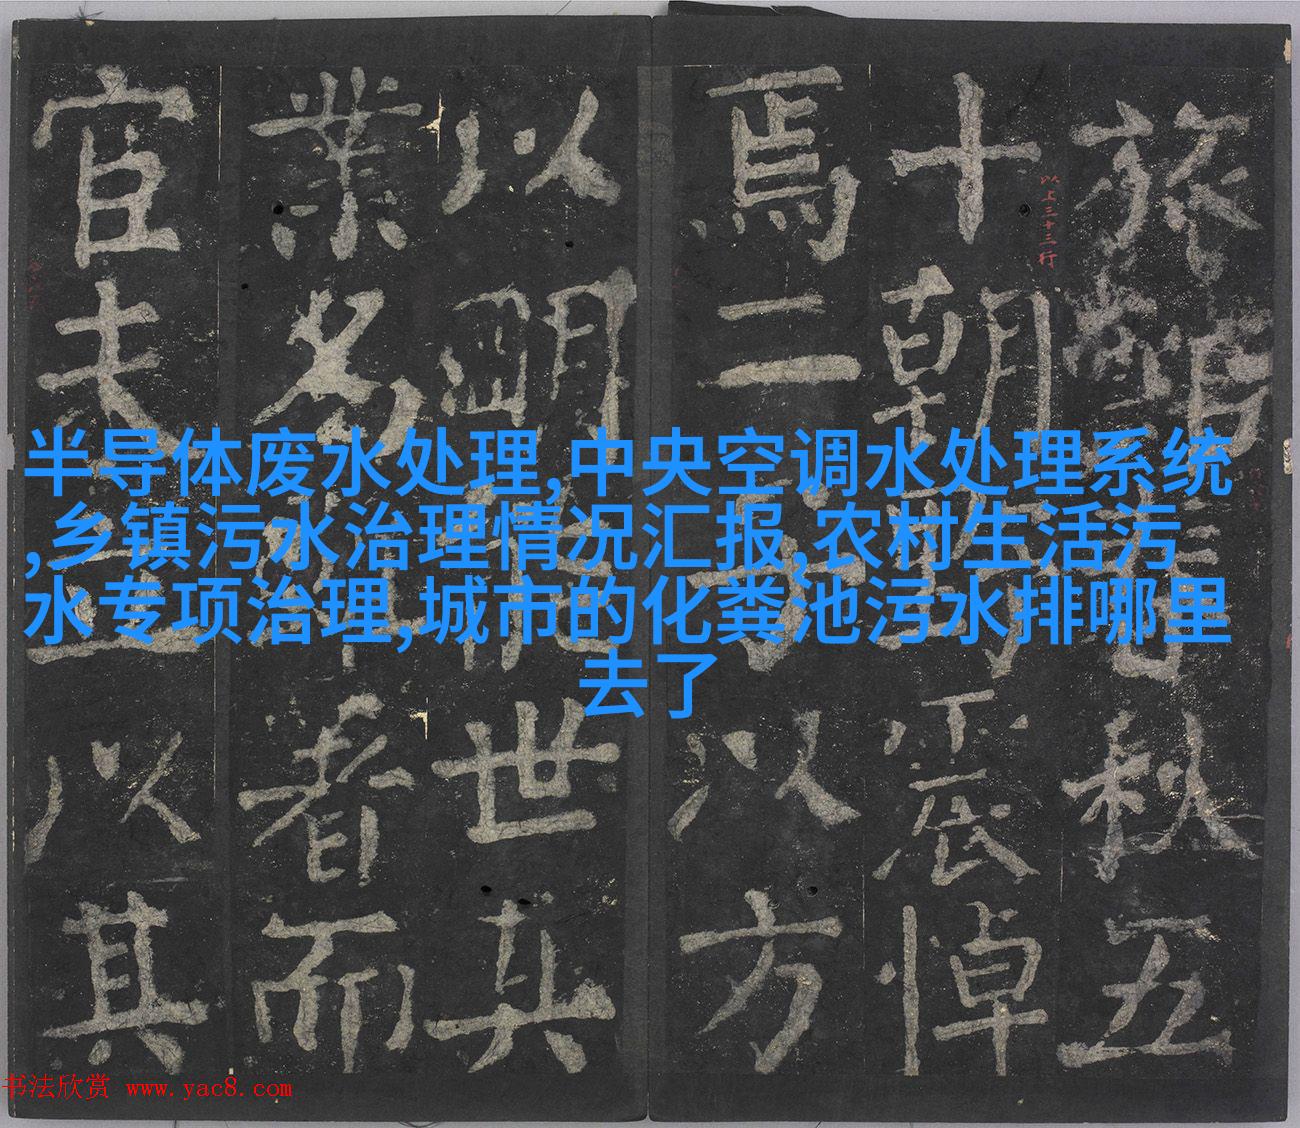 半导体废水处理,中央空调水处理系统
,乡镇污水治理情况汇报,农村生活污
水专项治理,城市的化粪池污水排哪里
去了
旅館秋五
十朝野震悼
以上三十三行
焉二以方
以明世其
業為者而
官夫以其
书法欣赏 www.yac8.com